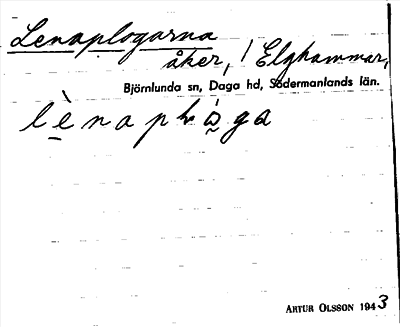 Lenaplogarna
åker, / Elghammar,
Björnlunda sn, Daga hd, Södermanlands län.
ARTUR OLSSON 1943